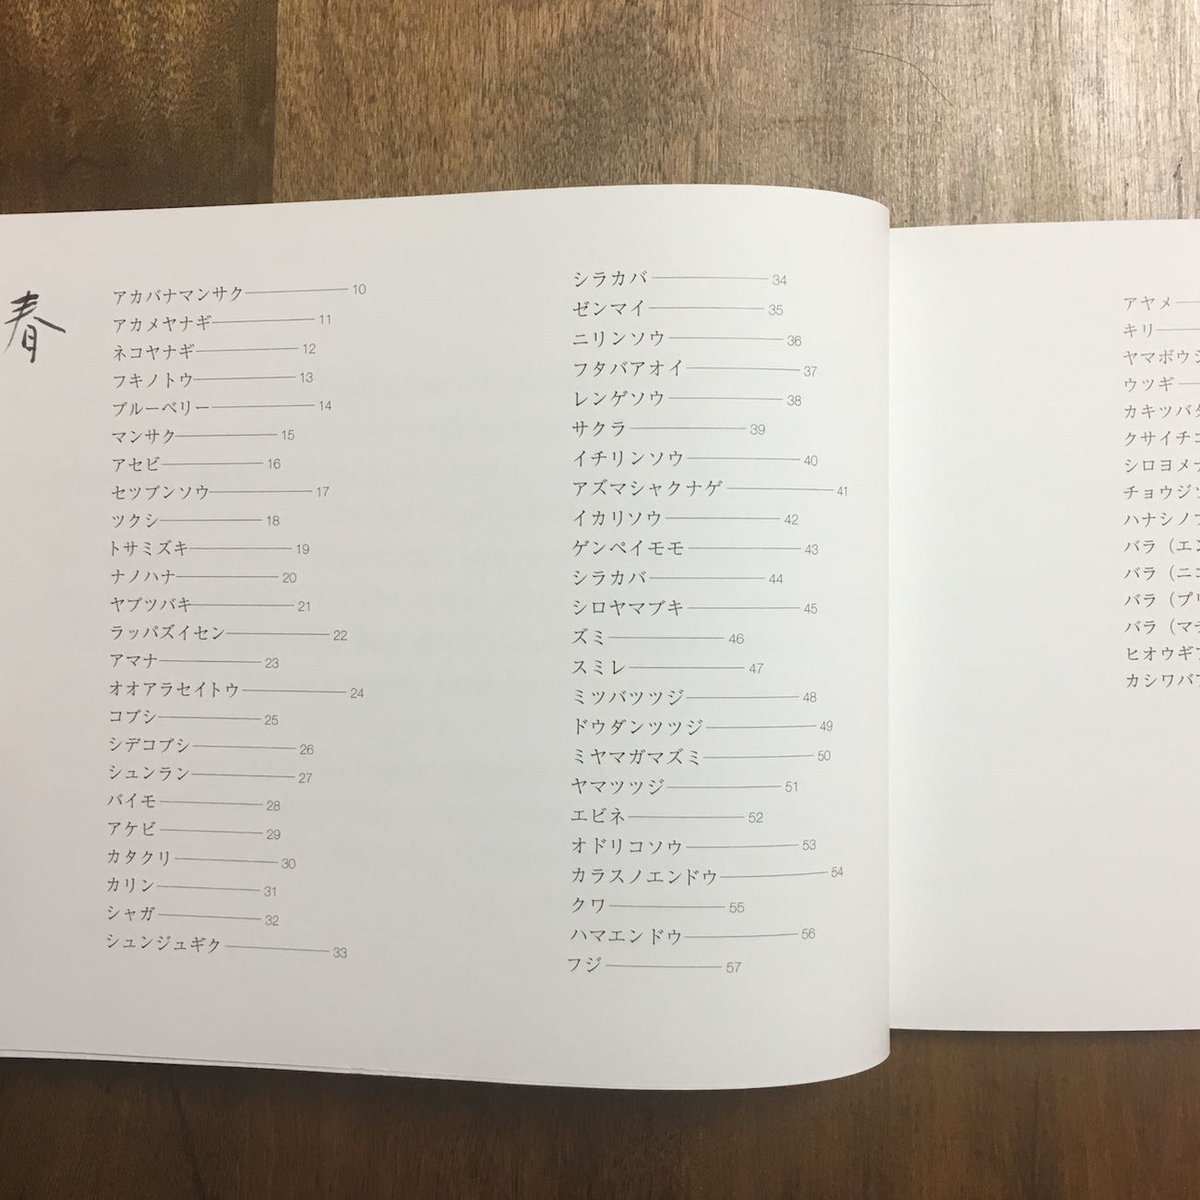 春
アカバナマンサク 10
アカメヤナギ 11
ネコヤナギ 12
フキノトウ 13
ブルーベリー 14
マンサク 15
アセビ 16
セツブンソウ 17
ツクシ 18
トサミズキ 19
ナノハナ 20
ヤブツバキ 21
ラッパズイセン 22
アマナ 23
オオアラセイトウ 24
コブシ 25
シデコブシ 26
シュンラン 27
バイモ 28
アケビ 29
カタクリ 30
カリン 31
シャガ 32
シュンジュギク 33
シラカバ 34
ゼンマイ 35
ニリンソウ 36
フタバアオイ 37
レンゲソウ 38
サクラ 39
イチリンソウ 40
アズマシャクナゲ 41
イカリソウ 42
ゲンペイモモ 43
シラカバ 44
シロヤマブキ 45
ズミ 46
スミレ 47
ミツバツツジ 48
ドウダンツツジ 49
ミヤマガマズミ 50
ヤマツツジ 51
エビネ 52
オドリコソウ 53
カラスノエンドウ 54
クワ 55
ハマエンドウ 56
フジ 57
アヤメ
キリ
ヤマボウシ
ウツギ
カキツバタ
クサイチゴ
シロヨメナ
チョウジソ
ハナシノブ
バラ（エン
バラ（ニコ
バラ（プリ
バラ（マチ
ヒオウギア
カシワバア